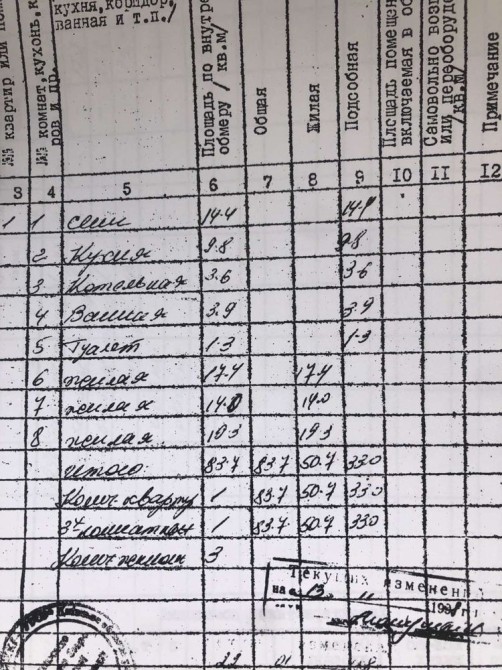 кухня, коридор,
ванная и т.п./
№№ квартир или
№№ комнат, кухонь,
ров и пр.
Площадь по внутре
обмеру / кв.м/
Общая
Жилая
Подсобная
Площадь помещен
включаемая в об
Самовольно возв
или переоборудо
/кв.м/
Примечание
3 4 5 6 7 8 9 10 11 12
1 1 сени 14.4 14.4
2 Кухня 9.8 9.8
3 Котельная 3.6 3.6
4 Ванная 3.9 3.9
5 Туалет 1.3 1.3
6 жилая 17.4 17.4
7 жилая 14.0 14.0
8 жилая 19.3 19.3
итого 83.7 83.7 50.7 33.0
Колич кварти 1 83.7 50.7 33.0
3х комнатных 1 83.7 50.7 33.0
Колич жилых 3
Текущих изменени
на 13
199 г.